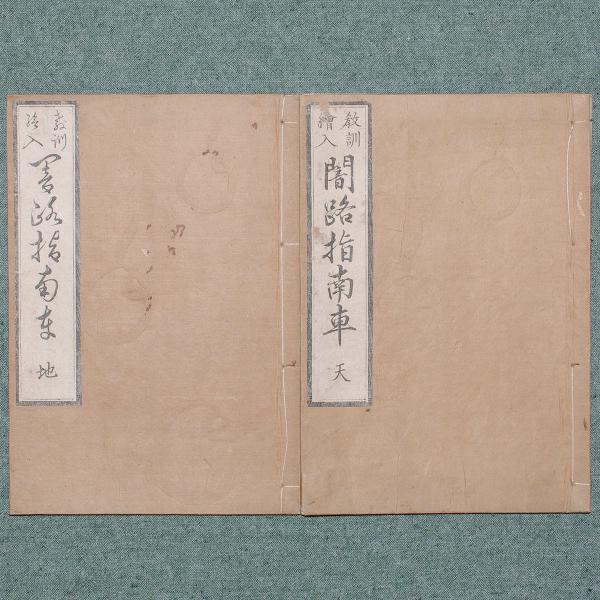 教訓
繪入
闇路指南車
天
教訓
絵入
闇路指南車
地